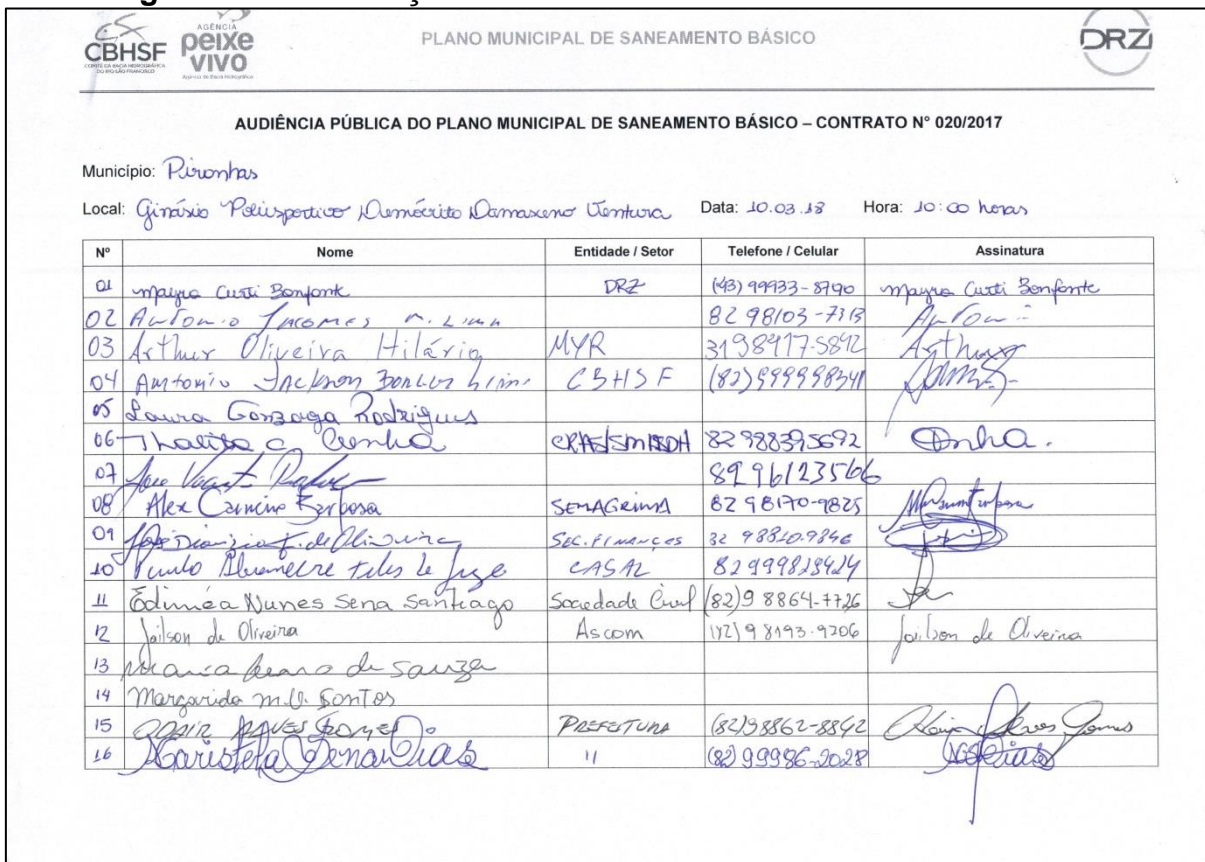 CBHSF
COMITÊ DA BACIA HIDROGRÁFICA
DO RIO SÃO FRANCISCO
AGÊNCIA
peixe
VIVO
PLANO MUNICIPAL DE SANEAMENTO BÁSICO
DRZ
AUDIÊNCIA PÚBLICA DO PLANO MUNICIPAL DE SANEAMENTO BÁSICO – CONTRATO N° 020/2017
Município: Piranhas
Local: Ginásio Poliesportivo Demócrito Damaxeno Ventura Data: 10.03.18 Hora: 10:00 horas
Nº Nome Entidade / Setor Telefone / Celular Assinatura
01 Mayra Curti Bonfante DRZ (43) 99933-8790 Mayra Curti Bonfante
02 Antonio Lima 82 98103-7313 Antoni
03 Arthur Oliveira Hilário MYR 31 98417-5842 Arthur
04 Antonio Jackson Lima CBHSF (82) 999998341
05 Laura Gonzaga Rodrigues
06 Thalita C. Cunha CRAS/ 82 988395692 Cunha.
07 Jose 82 96123566
08 Alex Barbosa SEMAGRIMA 82 98170-9825
09 José Dionizio F. de Oliveira SEC. FINANÇAS 82 98820.9846
10 CASAL 82 999829424
11 Edinnéa Nunes Sena Santiago Sociedade Civil (82) 9 8864-7726
12 Jailson de Oliveira Ascom (82) 9 8193-9206 Jailson de Oliveira
13 Maria de Souza
14 Margarida M. V. Santos
15 ODAIR ALVES GOMES PREFEITURA (82) 98862-8842 Odair Alves Gomes
16 Maristela Sena Dias 11 (82) 99986-2028